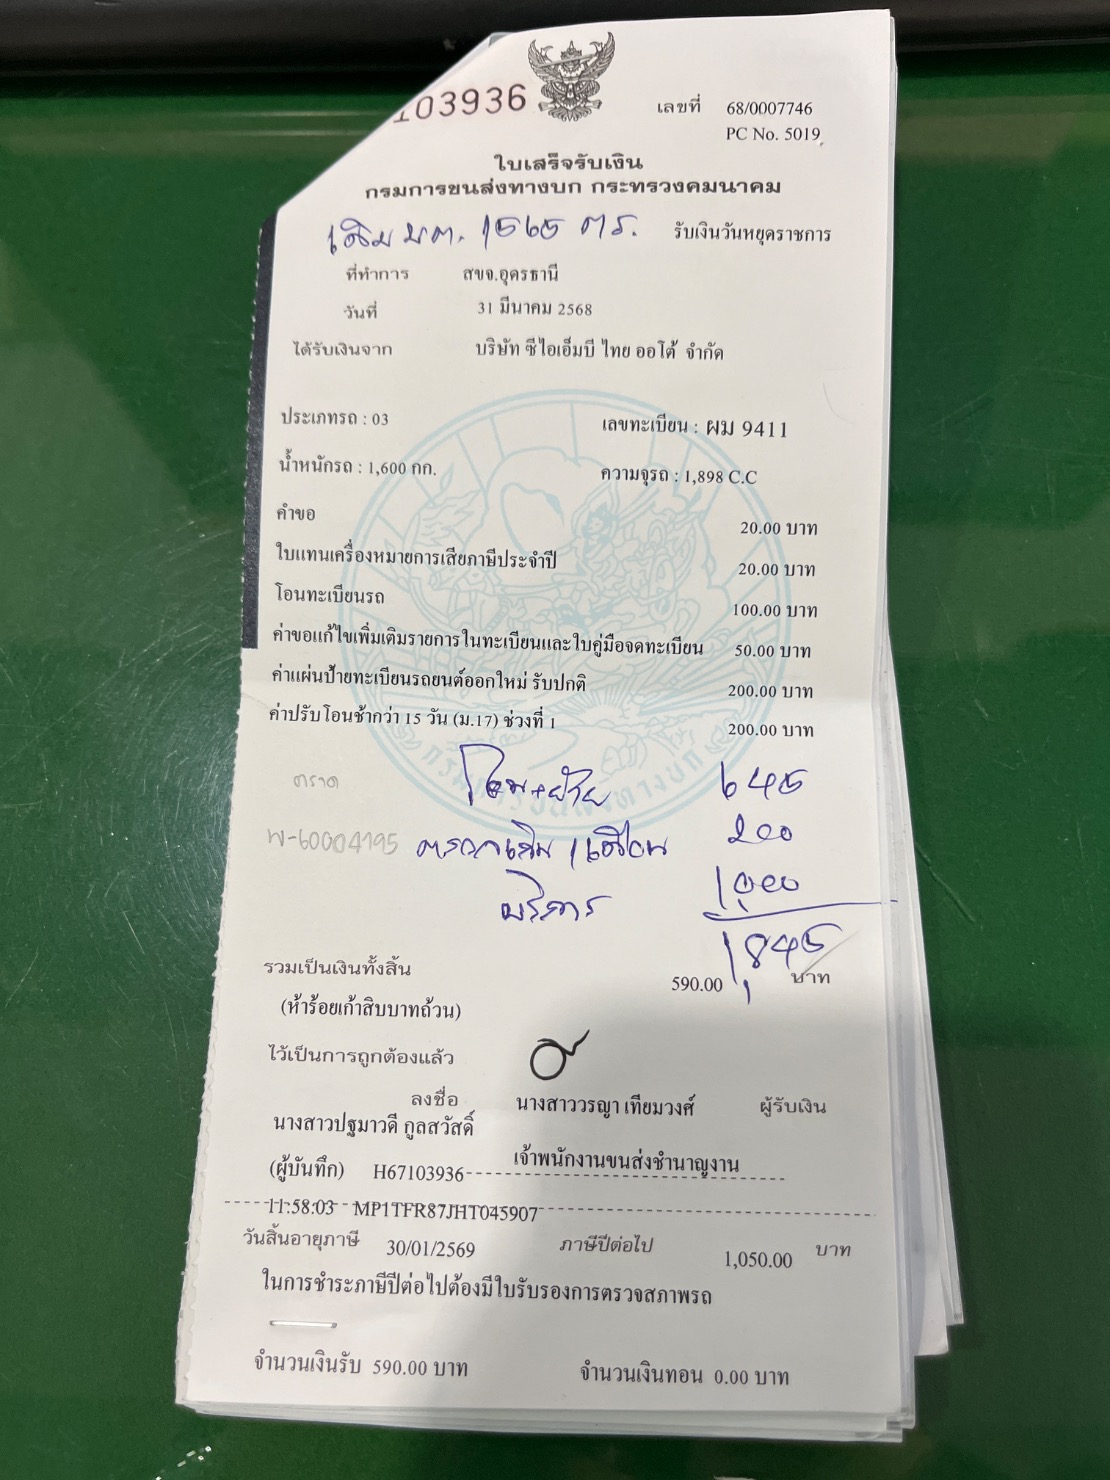 103936
เลขที่ 68/0007746
PC No. 5019
ใบเสร็จรับเงิน
กรมการขนส่งทางบก กระทรวงคมนาคม
เดิม บต. 1565 ตร. รับเงินวันหยุดราชการ
ที่ทำการ สขจ.อุดรธานี
วันที่ 31 มีนาคม 2568
ได้รับเงินจาก บริษัท ซีไอเอ็มบี ไทย ออโต้ จำกัด
ประเภทรถ : 03 เลขทะเบียน : ผม 9411
น้ำหนักรถ : 1,600 กก. ความจุรถ : 1,898 C.C
คำขอ 20.00 บาท
ใบแทนเครื่องหมายการเสียภาษีประจำปี 20.00 บาท
โอนทะเบียนรถ 100.00 บาท
ค่าขอแก้ไขเพิ่มเติมรายการในทะเบียนและใบคู่มือจดทะเบียน 50.00 บาท
ค่าแผ่นป้ายทะเบียนรถยนต์ออกใหม่ รับปกติ 200.00 บาท
ค่าปรับโอนช้ากว่า 15 วัน (ม.17) ช่วงที่ 1 200.00 บาท
กรมการขนส่งทางบก
ตราด โอน+ย้าย 645
พ-60004195 ตรวจเดิม 1 เดือน 200
บริการ 1,000
1,845
รวมเป็นเงินทั้งสิ้น 590.00 บาท
(ห้าร้อยเก้าสิบบาทถ้วน)
ไว้เป็นการถูกต้องแล้ว
ลงชื่อ นางสาววรญา เทียมวงศ์ ผู้รับเงิน
นางสาวปฐมาวดี กูลสวัสดิ์
(ผู้บันทึก) H67103936 เจ้าพนักงานขนส่งชำนาญงาน
11:58:03 MP1TFR87JHT045907
วันสิ้นอายุภาษี 30/01/2569 ภาษีปีต่อไป 1,050.00 บาท
ในการชำระภาษีปีต่อไปต้องมีใบรับรองการตรวจสภาพรถ
จำนวนเงินรับ 590.00 บาท จำนวนเงินทอน 0.00 บาท